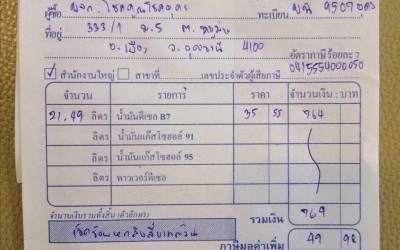 ผู้ซื้อ หจก. โชคคูณโชคอุดร ทะเบียน 9507 อุดร
ที่อยู่ 333/1 ม.5 ต.
อ.เมือง จ.อุดรธานี 4100 อัตราภาษีร้อยละ 7
✓ สำนักงานใหญ่ สาขาที่ เลขประจำตัวผู้เสียภาษี 0415554000050
จำนวน รายการ ราคา จำนวนเงิน : บาท
21.49 ลิตร น้ำมันดีเซล B7 35 55 764
ลิตร น้ำมันแก๊สโซฮอล์ 91
ลิตร น้ำมันแก๊สโซฮอล์ 95
ลิตร พาวเวอร์ดีเซล
จำนวนเงินรวมทั้งสิ้น (ตัวอักษร) รวมเงิน 764
เจ็ดร้อยหกสิบสี่บาทถ้วน ภาษีมูลค่าเพิ่ม 49 98